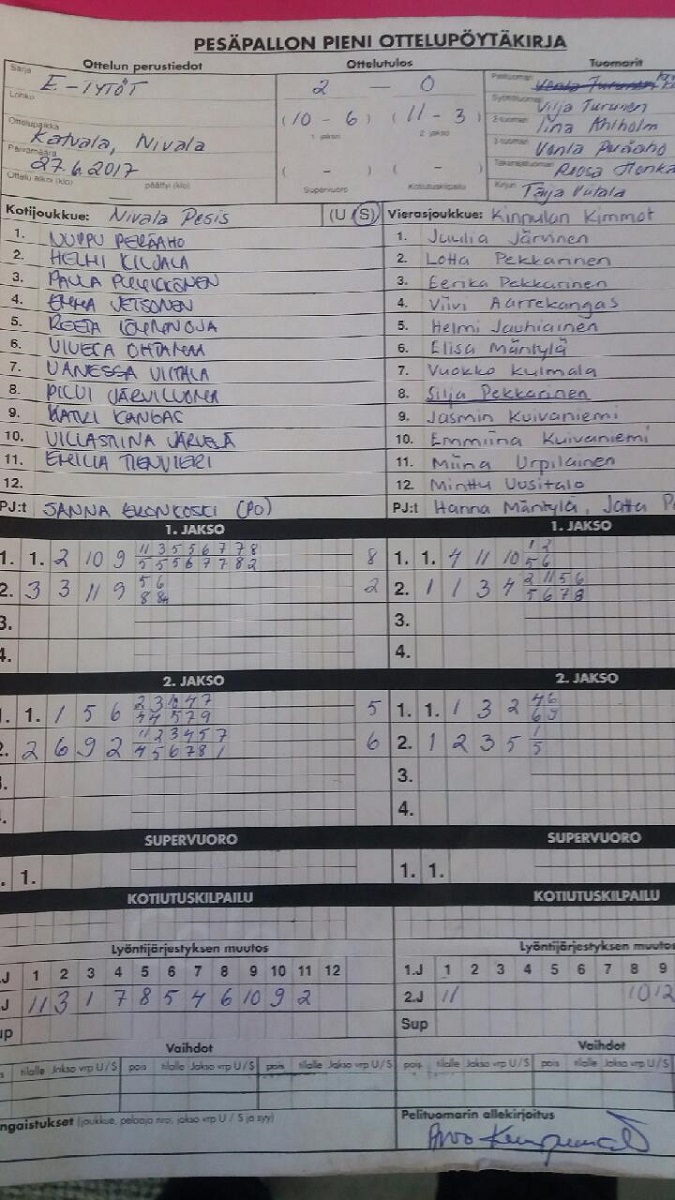 PESÄPALLON PIENI OTTELUPÖYTÄKIRJA
Ottelun perustiedot Ottelutulos Tuomarit
Sarja E-TYTÖT 2 - 0
Lohko (10 - 6) (11 - 3) Vilja Turunen
1. jakso 2. jakso
Ottelupaikka Katvala, Nivala Tiina Ahlholm
Päivämäärä 27.6.2017 Venla Peräaho
Ottelu alkoi (klo) päättyi (klo) ( - ) ( - ) Roosa Honka
Supervuoro Kotiutuskilpailu Kirjuri Tarja Vutala
Kotijoukkue: Nivala Pesis (U (S) Vierasjoukkue: Kinnulan Kimmot
1. NUPPU PERÄAHO 1. Juulia Järvinen
2. HELMI KILJALA 2. Lotta Pekkarinen
3. 3. Eerika Pekkarinen
4. EMMA 4. Viivi Aarrekangas
5. REETA 5. Helmi Jauhiainen
6. VIVECA OHTAMAA 6. Elisa Mäntylä
7. VANESSA VIITALA 7. Vuokko Kulmala
8. PILVI JÄRVILUOMA 8. Silja Pekkarinen
9. KATRI KANGAS 9. Jasmin Kuivaniemi
10. VILLASTIINA JÄRVELÄ 10. Emmiina Kuivaniemi
11. EMILIA TIENVIERI 11. Miina Urpilainen
12. 12. Minttu Uusitalo
PJ:t SANNA (PO) PJ:t Hanna Mäntylä, Jatta
1. JAKSO 1. JAKSO
1. 1. 2 10 9 11 3 5 5 6 7 7 8 8 1. 1. 4 11 10 1 2
5 5 5 6 7 7 8 2 5 6
2. 3 3 11 9 5 6 2 2. 1 1 3 4 2 11 5 6
8 8 5 6 7 8
3. 3.
4. 4.
2. JAKSO 2. JAKSO
1. 1. 1 5 6 5 1. 1. 1 3 2 4 6
4 4 5 7 9 6 9
2. 2 6 9 2 11 2 3 4 5 7 6 2. 1 2 3 5 1
4 5 6 7 8 1 5
3.
4.
SUPERVUORO SUPERVUORO
1. 1. 1.
KOTIUTUSKILPAILU KOTIUTUSKILPAILU
Lyöntijärjestyksen muutos Lyöntijärjestyksen muutos
.J 1 2 3 4 5 6 7 8 9 10 11 12 1.J 1 2 3 4 5 6 7 8 9
J 11 3 1 7 8 5 4 6 10 9 2 2.J 11 10 12
up Sup
Vaihdot Vaihdot
s tilalle Jakso vrp U/S pois tilalle Jakso vrp U/S pois tilalle Jakso vrp U/S pois tilalle Jakso vrp U/S pois tilalle Jakso vrp U/S
ngaistukset (joukkue, pelaaja nro, jakso vrp U / S ja syy) Pelituomarin allekirjoitus